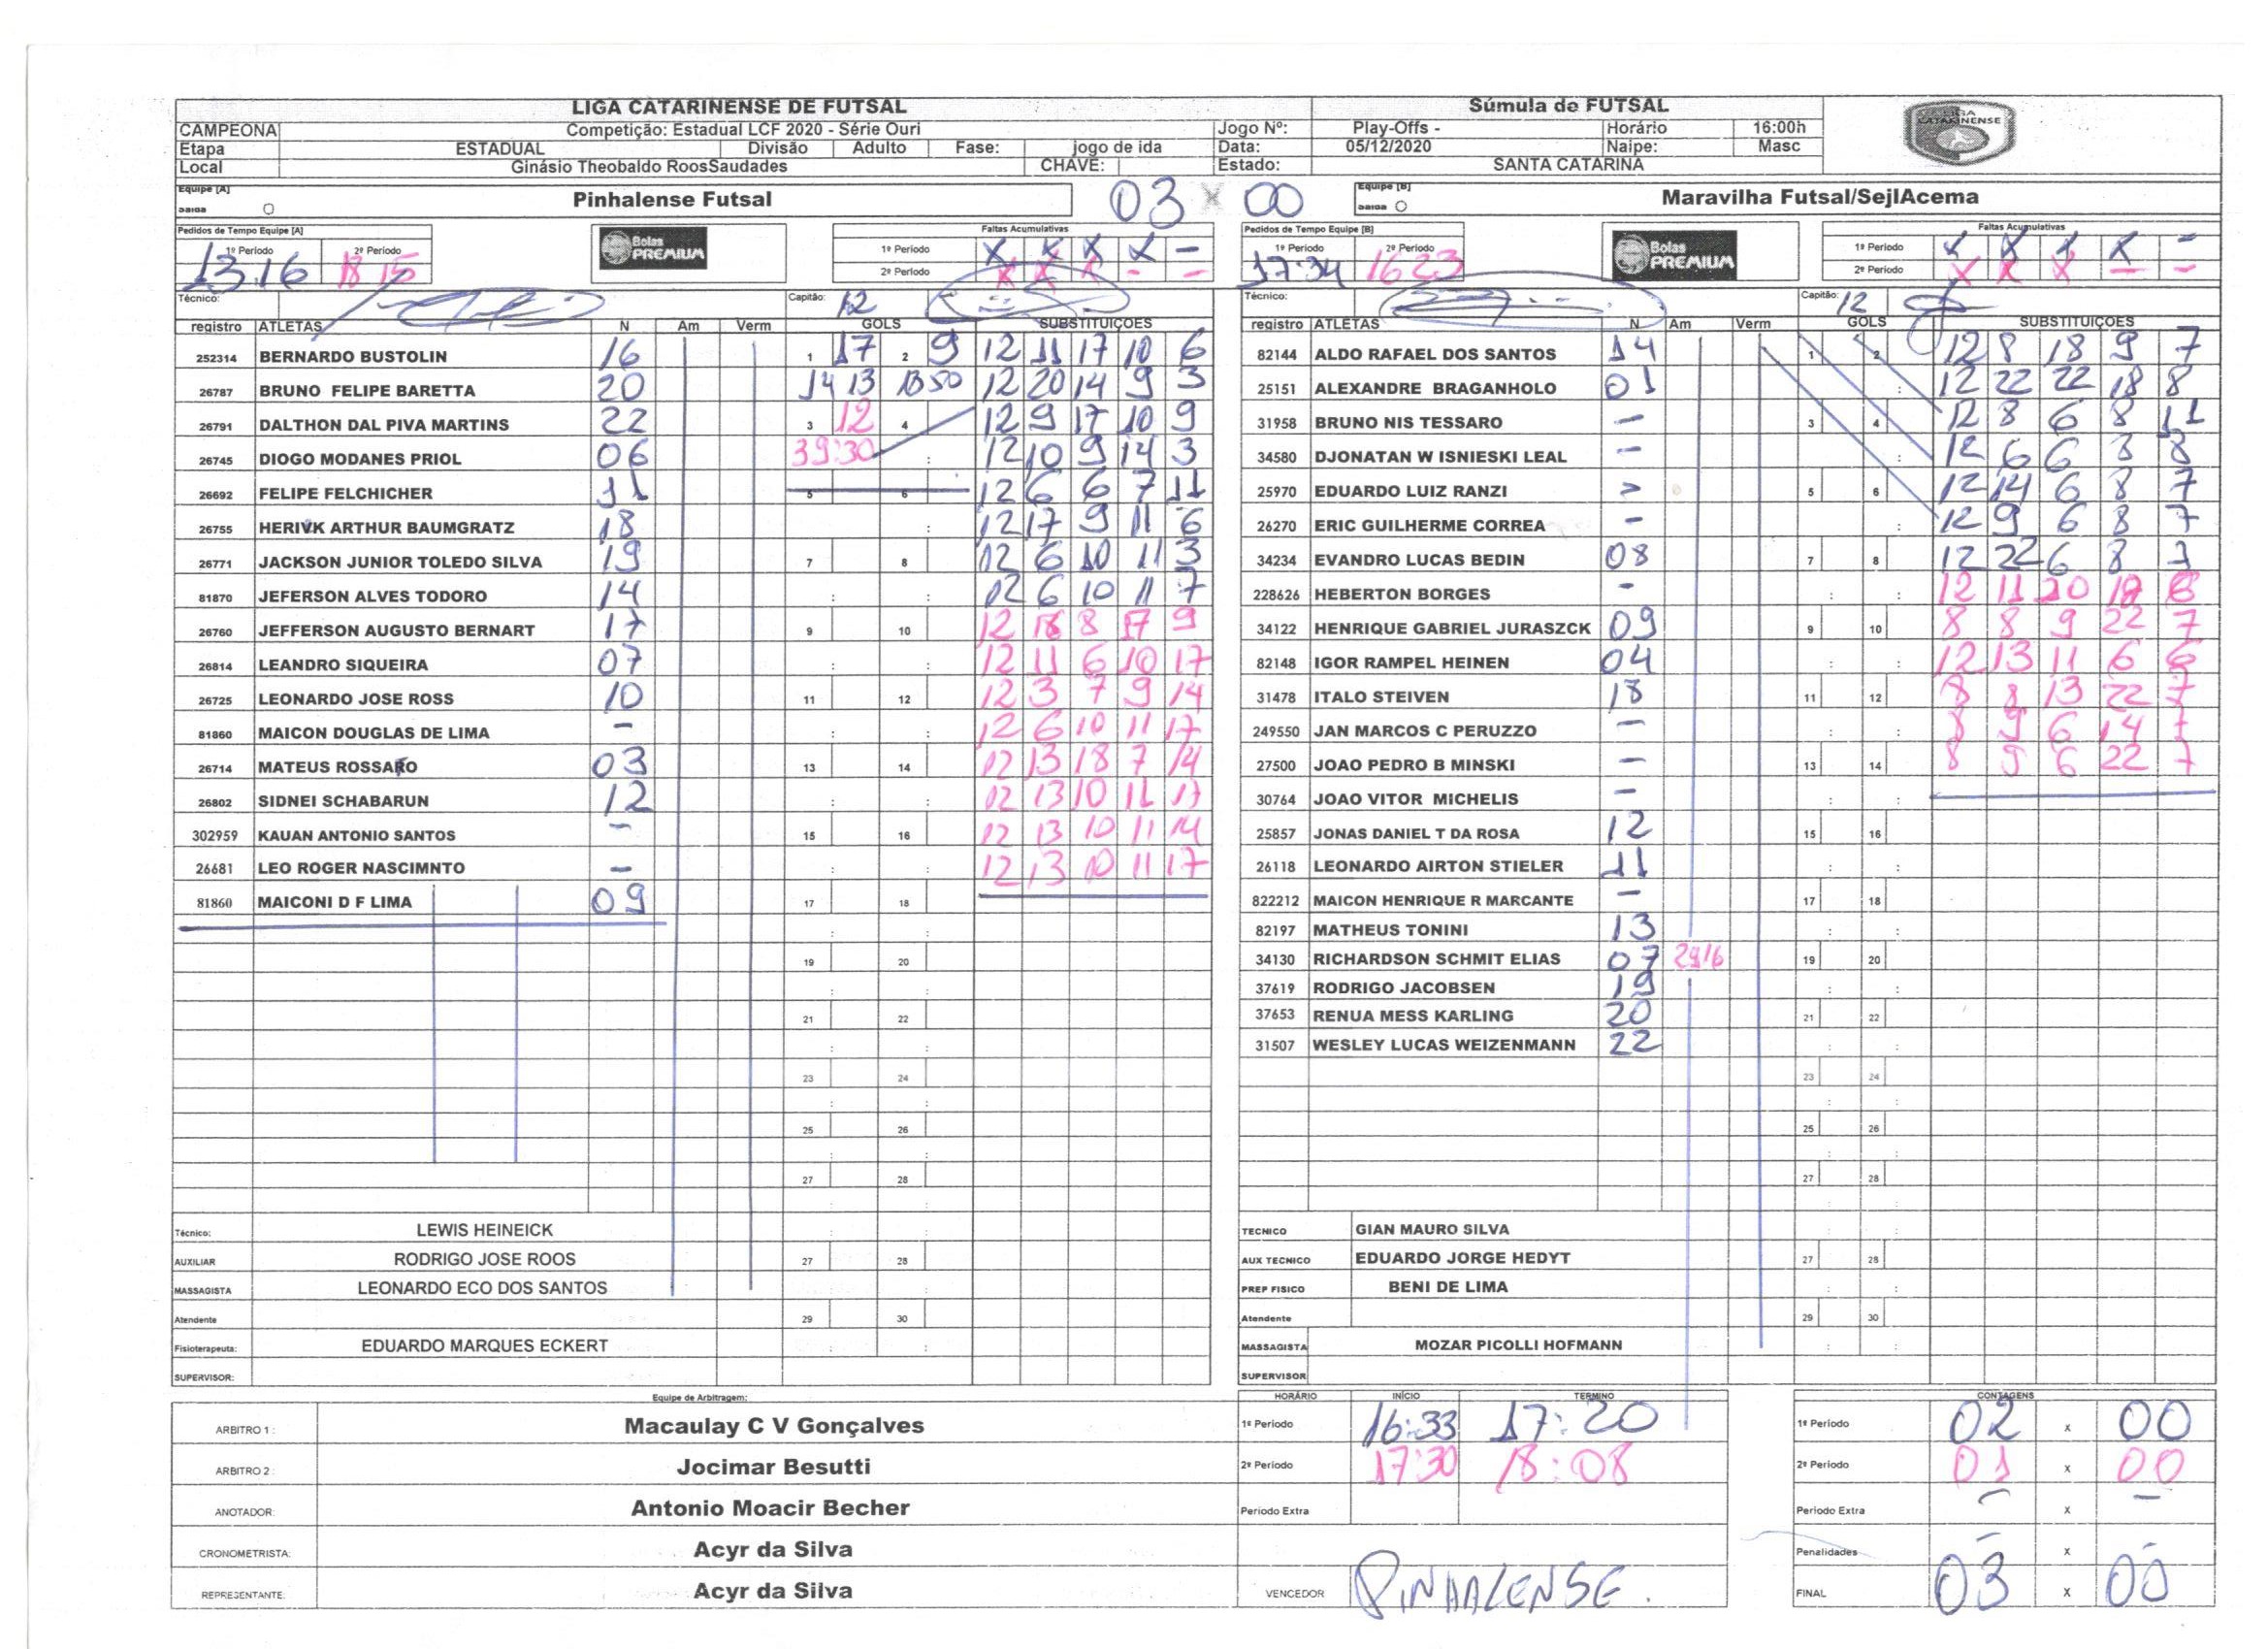 LIGA CATARINENSE DE FUTSAL Súmula de FUTSAL
CAMPEONA Competição: Estadual LCF 2020 - Série Ouri Jogo Nº: Play-Offs - Horário 16:00h
Etapa ESTADUAL Divisão Adulto Fase: jogo de ida Data: 05/12/2020 Naipe: Masc
Local Ginásio Theobaldo RoosSaudades CHAVE: Estado: SANTA CATARINA
LIGA CATARINENSE
Equipe [A] Pinhalense Futsal 03 x 00 Equipe [B] Maravilha Futsal/SejlAcema
Pedidos de Tempo Equipe [A] Bolas PREMIUM Faltas Acumulativas Pedidos de Tempo Equipe [B] Bolas PREMIUM Faltas Acumulativas
1º Periodo 2º Periodo 1º Periodo X X X X – 1º Periodo 2º Periodo 1º Periodo X X X X –
13:16 18 15 2º Periodo X X X – – 17:34 16 23 2º Periodo X X X – –
Técnico: Capitão: 12 Técnico: Capitão: 12
registro ATLETAS N Am Verm GOLS SUBSTITUIÇOES registro ATLETAS N Am Verm GOLS SUBSTITUIÇOES
252314 BERNARDO BUSTOLIN 16 1 17 2 9 12 11 17 10 6 82144 ALDO RAFAEL DOS SANTOS 14 1 2 12 8 18 9 7
26787 BRUNO FELIPE BARETTA 20 14 13 18 50 12 20 14 9 3 25151 ALEXANDRE BRAGANHOLO 01 : 12 22 22 18 8
26791 DALTHON DAL PIVA MARTINS 22 3 12 4 12 9 17 10 9 31958 BRUNO NIS TESSARO – 3 4 12 8 6 8 11
26745 DIOGO MODANES PRIOL 06 39:30 : 12 10 9 14 3 34580 DJONATAN W ISNIESKI LEAL – : 12 6 6 8 8
26692 FELIPE FELCHICHER 11 5 6 12 6 6 7 11 25970 EDUARDO LUIZ RANZI 5 6 12 14 6 8 7
26755 HERIVK ARTHUR BAUMGRATZ 18 : 12 17 9 11 6 26270 ERIC GUILHERME CORREA – : 12 9 6 8 7
26771 JACKSON JUNIOR TOLEDO SILVA 19 7 8 12 6 10 11 3 34234 EVANDRO LUCAS BEDIN 08 7 8 12 22 6 8
81870 JEFERSON ALVES TODORO 14 : : 12 6 10 11 7 228626 HEBERTON BORGES – : : 12 11 20
26760 JEFFERSON AUGUSTO BERNART 17 9 10 12 18 8 17 9 34122 HENRIQUE GABRIEL JURASZCK 09 9 10 8 8 9 22 7
26814 LEANDRO SIQUEIRA 07 : : 12 11 6 10 17 82148 IGOR RAMPEL HEINEN 04 : : 12 13 11 6 6
26725 LEONARDO JOSE ROSS 10 11 12 12 3 7 9 14 31478 ITALO STEIVEN 18 11 12 8 8 13 22 7
81860 MAICON DOUGLAS DE LIMA – : : 12 6 10 11 17 249550 JAN MARCOS C PERUZZO – : : 8 9 6 14 7
26714 MATEUS ROSSARO 03 13 14 12 13 18 7 14 27500 JOAO PEDRO B MINSKI – 13 14 8 9 6 22 7
26802 SIDNEI SCHABARUN 12 : : 12 13 10 11 17 30764 JOAO VITOR MICHELIS – : :
302959 KAUAN ANTONIO SANTOS – 15 16 12 13 10 11 14 25857 JONAS DANIEL T DA ROSA 12 15 16
26681 LEO ROGER NASCIMNTO – : : 12 13 10 11 17 26118 LEONARDO AIRTON STIELER 11 : :
81860 MAICONI D F LIMA 09 17 18 822212 MAICON HENRIQUE R MARCANTE – 17 18
: : 82197 MATHEUS TONINI 13
19 20 34130 RICHARDSON SCHMIT ELIAS 07 29 16 19 20
: : 37619 RODRIGO JACOBSEN 19 : :
21 22 37653 RENUA MESS KARLING 20 21 22
: : 31507 WESLEY LUCAS WEIZENMANN 22 : :
23 24 23 24
: : : :
25 26 25 26
: : : :
27 28 27 28
Técnico: LEWIS HEINEICK : : TECNICO GIAN MAURO SILVA : :
AUXILIAR RODRIGO JOSE ROOS 27 28 AUX TECNICO EDUARDO JORGE HEDYT 27 28
MASSAGISTA LEONARDO ECO DOS SANTOS : : PREP FISICO BENI DE LIMA : :
Atendente 29 30 Atendente 29 30
Fisioterapeuta: EDUARDO MARQUES ECKERT : : MASSAGISTA MOZAR PICOLLI HOFMANN : :
SUPERVISOR: SUPERVISOR
Equipe de Arbitragem: HORÁRIO INÍCIO TERMINO CONTAGENS
ARBITRO 1 : Macaulay C V Gonçalves 1º Periodo 16:33 17:20 1º Periodo 02 x 00
ARBITRO 2 : Jocimar Besutti 2º Periodo 17:30 18:08 2º Periodo 01 x 00
ANOTADOR: Antonio Moacir Becher Periodo Extra Periodo Extra – x –
CRONOMETRISTA: Acyr da Silva Penalidades – x –
REPRESENTANTE: Acyr da Silva VENCEDOR PINHALENSE. FINAL 03 x 00